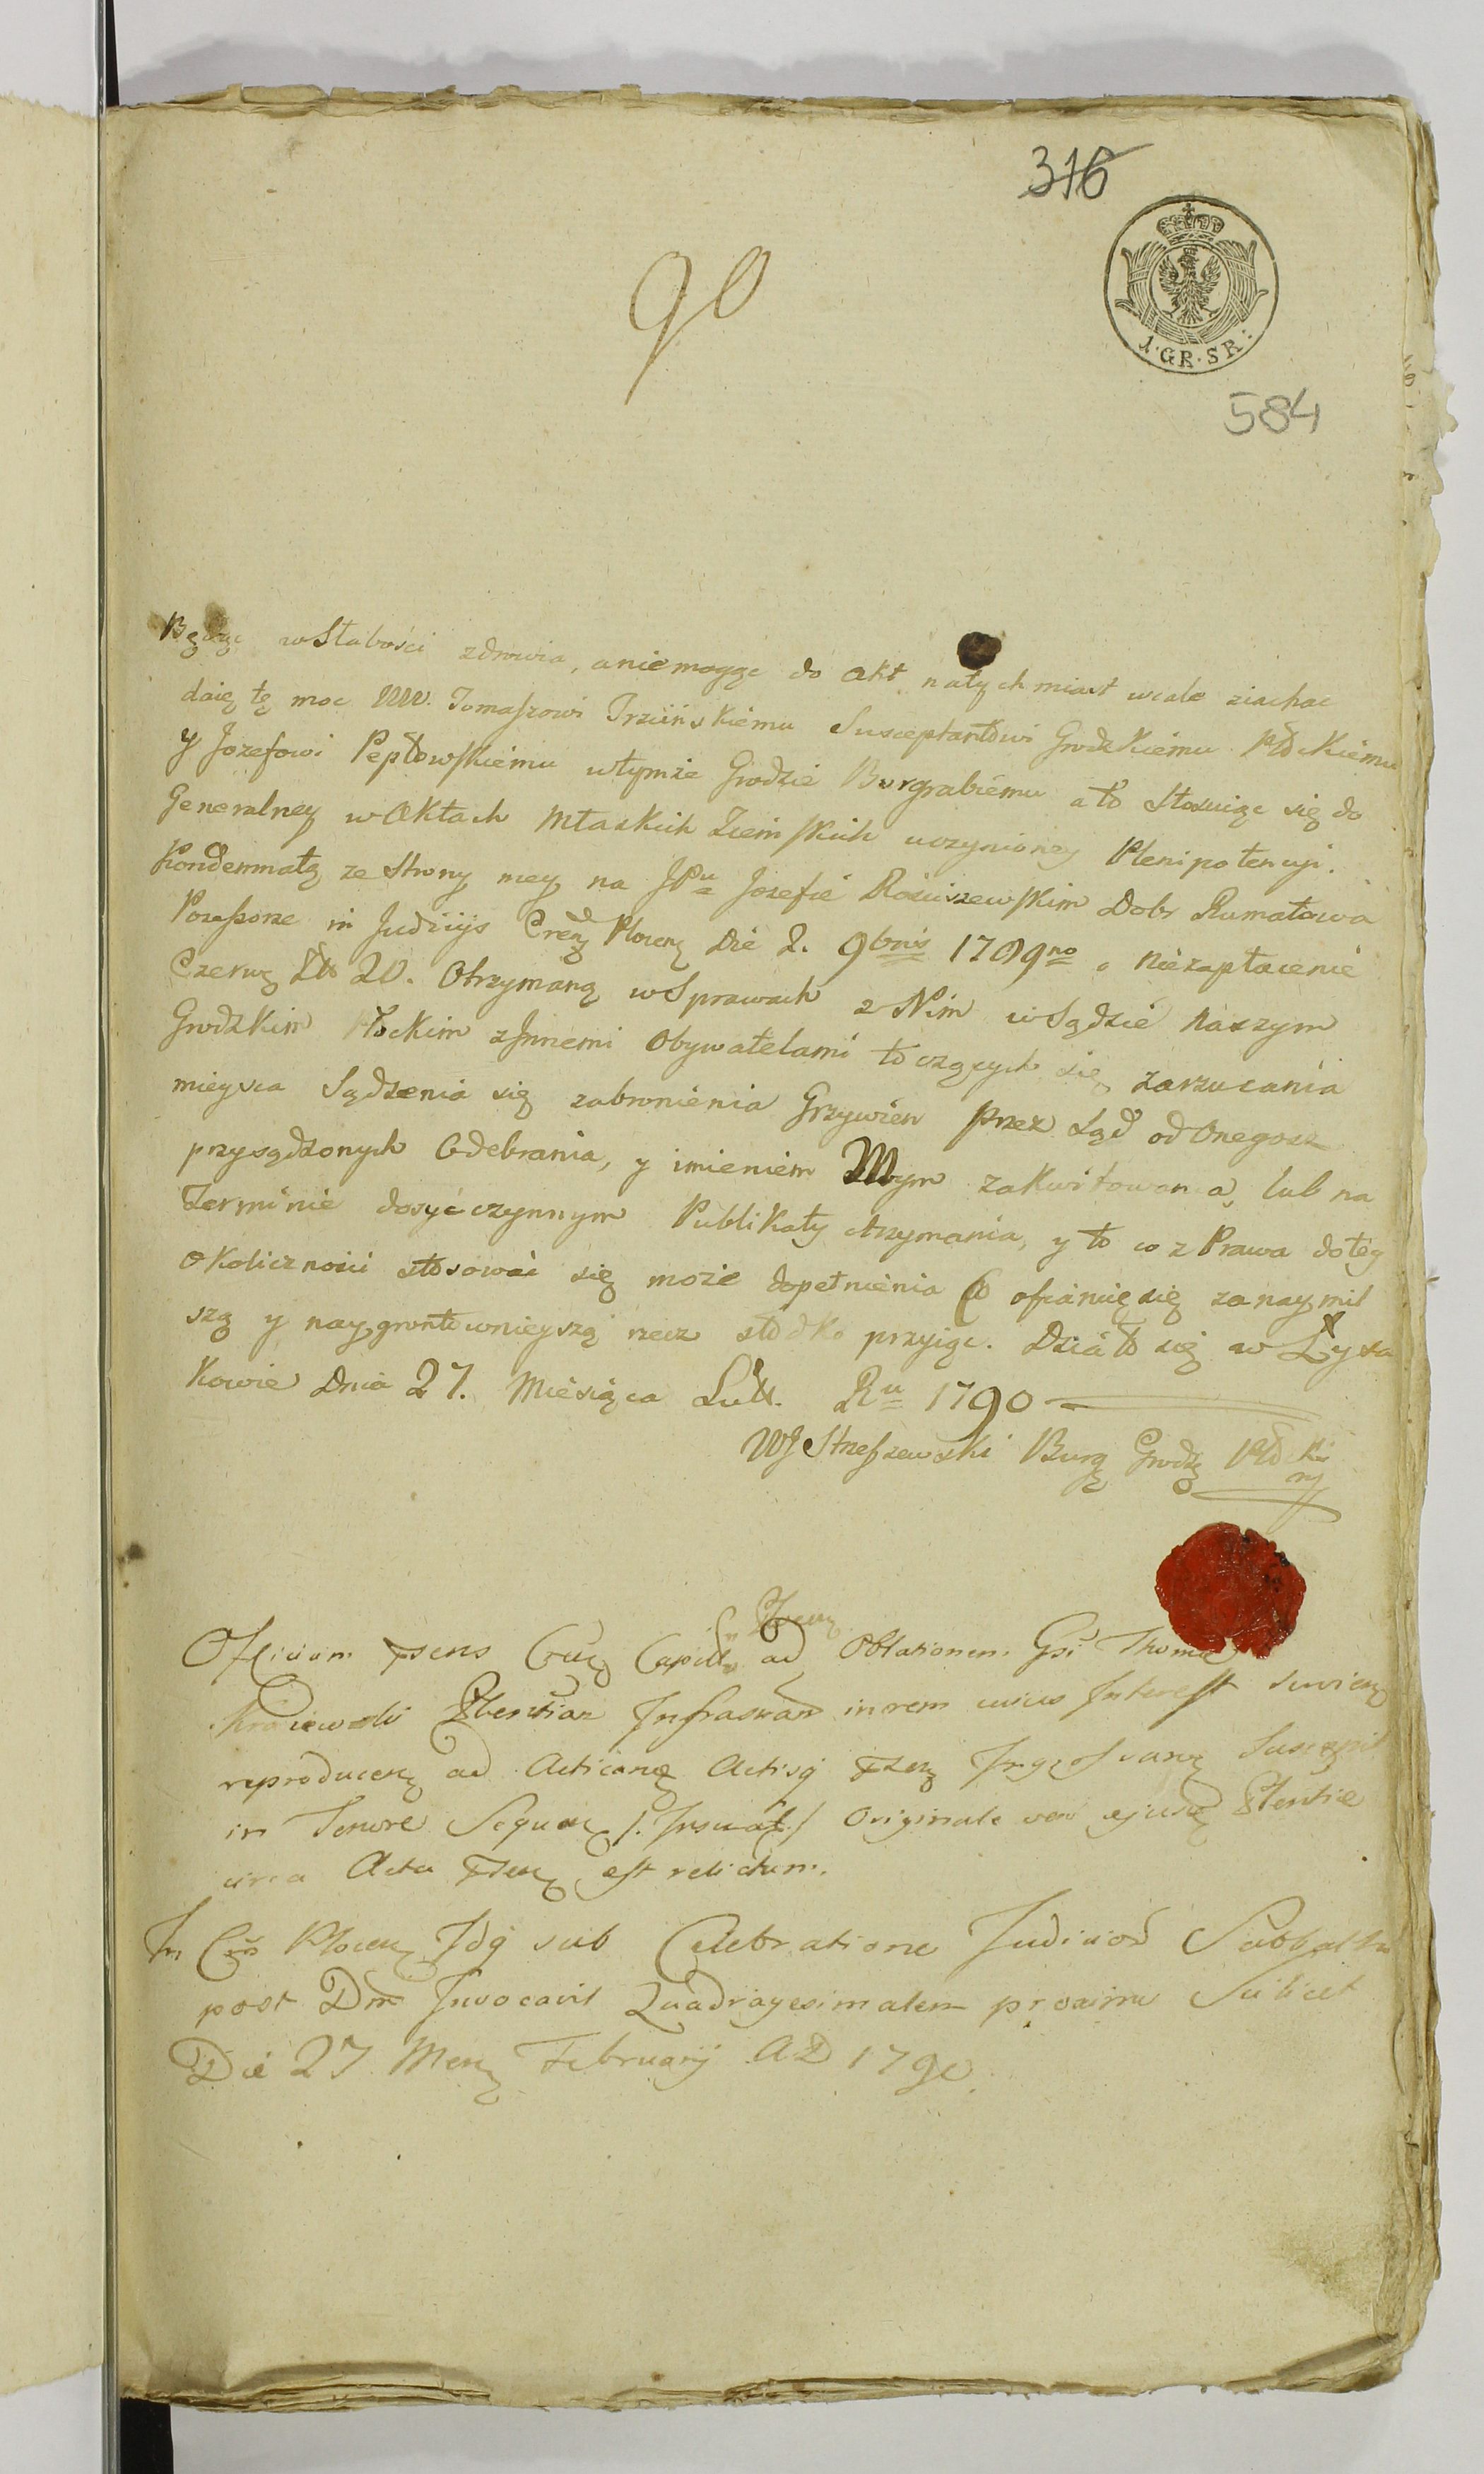 316
90
1. GR. SR:
584
Będąc w Słabości zdrowia, a niemogąc do akt natychmiast wcale ziachac
daię tę moc Tomaszowi Trzcińskiemu Susceptantowi Grodzkiemu Płockiemu
y Jozefowi Pepłowskiemu w tymże Grodzie Burgrabiemu a to stosuiąc się do
Generalney w Aktach Mławskich Ziemskich uczynioney Plenipotencyi.
Kondemnatę ze strony mey na JPu Jozefie Rościszewskim Dobr Rumatowa
Possessorze in Judicijs Płocen Die 2. 9bris 1789no o niezapłacenie
Czerw Zł 20. Otrzymaną w Sprawach z Nim w Sądzie Naszym
Grodzkim Płockim z Innemi Obywatelami toczących się zarzucania
mieysca Sądzenia się zabronienia Grzywien przez Sąd od Onegosz
przysądzonych Odebrania, y imieniem Mym zakwitowania, lub na
Terminie dosyć czynnym Publikaty otrzymania, y to co z Prawa do tey
okoliczności stosować się może dopełnienia Co ofiaruię się za naymil
szą y naygruntownieyszą rzecz słodko przyiąc. Działo się w Łysa
kowie Dnia 27. Miesiąca Lut. Ru 1790
WJ Strzeszewski Burg Grodz Płocki
mp
Officium psens Capit ad Oblationem Gsi Thomæ
Kraiewski in rem cuius Interest
reproducen ad Acticand Actisq psen Suscepit
in Tenore Sequen Originale vero ejusd Pltentiæ
circa Acta psen est relictum.
In Plocen Idq sub Celebratione Judicior Sabbatho
post Dm Invocavit Quadragesimalem proximo Scilicet
Die 27 Mens Februarij AD 1790.